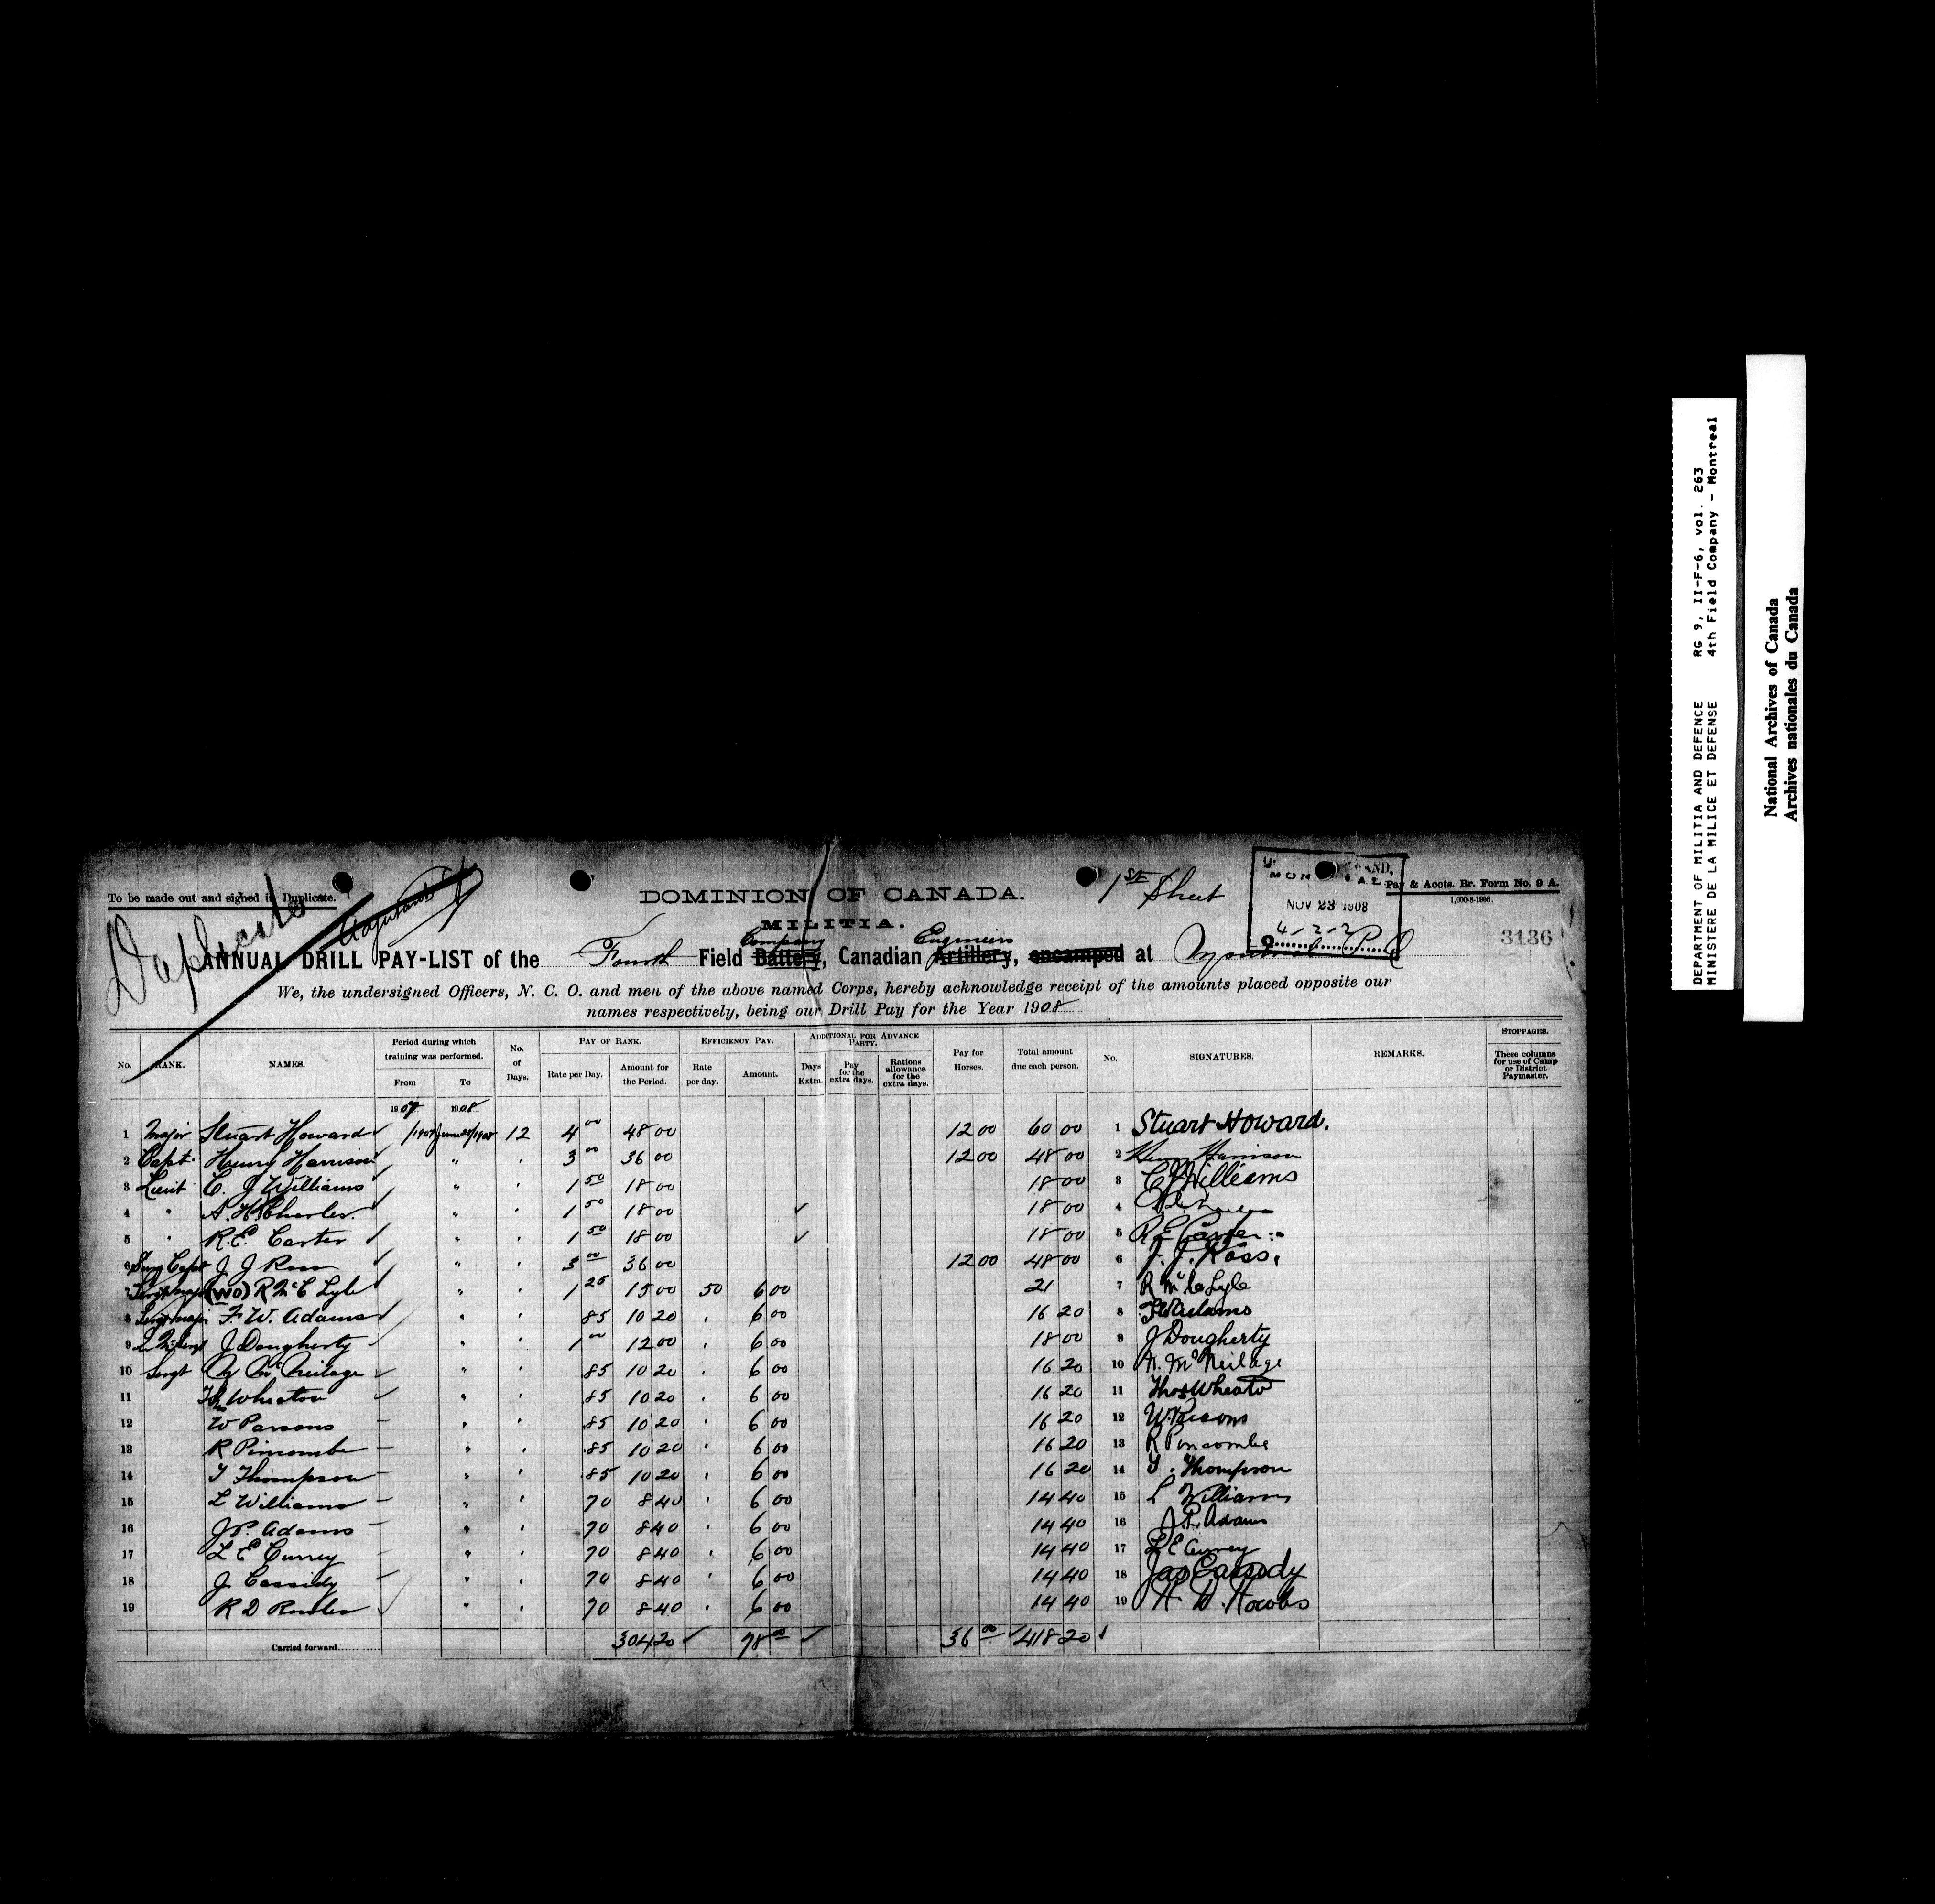 To be made out and signed in Duplicate.
Duplicate
DOMINION OF CANADA.
MILITIA.
1st Sheet
NOV 23 1908
4-2-2
Pay & Accts. Br. Form No. 9 A.
1,000-8-1908.
3136
Company Engineers
ANNUAL DRILL PAY-LIST of the Fourth Field Battery, Canadian Artillery, encamped at Montreal P Q
We, the undersigned Officers, N. C. O. and men of the above named Corps, hereby acknowledge receipt of the amounts placed opposite our
names respectively, being our Drill Pay for the Year 1908
No. RANK. NAMES. Period during which training was performed. From To No. of Days. PAY OF RANK. Rate per Day. Amount for the Period. EFFICIENCY PAY. Rate per day. Amount. ADDITIONAL FOR ADVANCE PARTY. Days Extra. Pay for the extra days. Rations allowance for the extra days. Pay for Horses. Total amount due each person. No. SIGNATURES. REMARKS. STOPPAGES. These columns for use of Camp or District Paymaster.
1907 1908
1 Major Stuart Howard 12 4 00 48 00 12 00 60 00 1 Stuart Howard.
2 Capt. Henry Harrison " 3 00 36 00 12 00 48 00 2 Henry Harrison
3 Lieut C. J Williams " 1 50 18 00 18 00 3 C J Williams
4 " A. H. " 1 50 18 00 18 00 4
5 " R.E. Carter " 1 50 18 00 18 00 5 R E Carter
6 Surg Capt J J Ross " 3 00 36 00 12 00 48 00 6 J. J. Ross.
7 Sergt maj (WO) R McC Lyle " 1 25 15 00 50 6 00 21 7 R McC Lyle
8 Sergt maj F. W. Adams " 85 10 20 6 00 16 20 8 F W Adams
9 J Dougherty " 1 00 12 00 6 00 18 00 9 J Dougherty
10 Sergt N McNeilage " 85 10 20 6 00 16 20 10 N. McNeilage
11 Thos Wheaton " 85 10 20 6 00 16 20 11 Thos Wheaton
12 W Parsons " 85 10 20 6 00 16 20 12 W. Parsons
13 R Pincombe " 85 10 20 6 00 16 20 13 R Pincombe
14 T Thompson " 85 10 20 6 00 16 20 14 T. Thompson
15 L Williams " 70 8 40 6 00 14 40 15 L Williams
16 J.P. Adams " 70 8 40 6 00 14 40 16 J P. Adams
17 L E Currey " 70 8 40 6 00 14 40 17 L E Currey
18 J Cassidy " 70 8 40 6 00 14 40 18 Jas Cassidy
19 R D " 70 8 40 6 00 14 40 19
Carried forward 304 20 78 00 36 00 418 20
DEPARTMENT OF MILITIA AND DEFENCE RG 9, II-F-6, vol. 263
MINISTERE DE LA MILICE ET DEFENSE 4th Field Company - Montreal
National Archives of Canada
Archives nationales du Canada